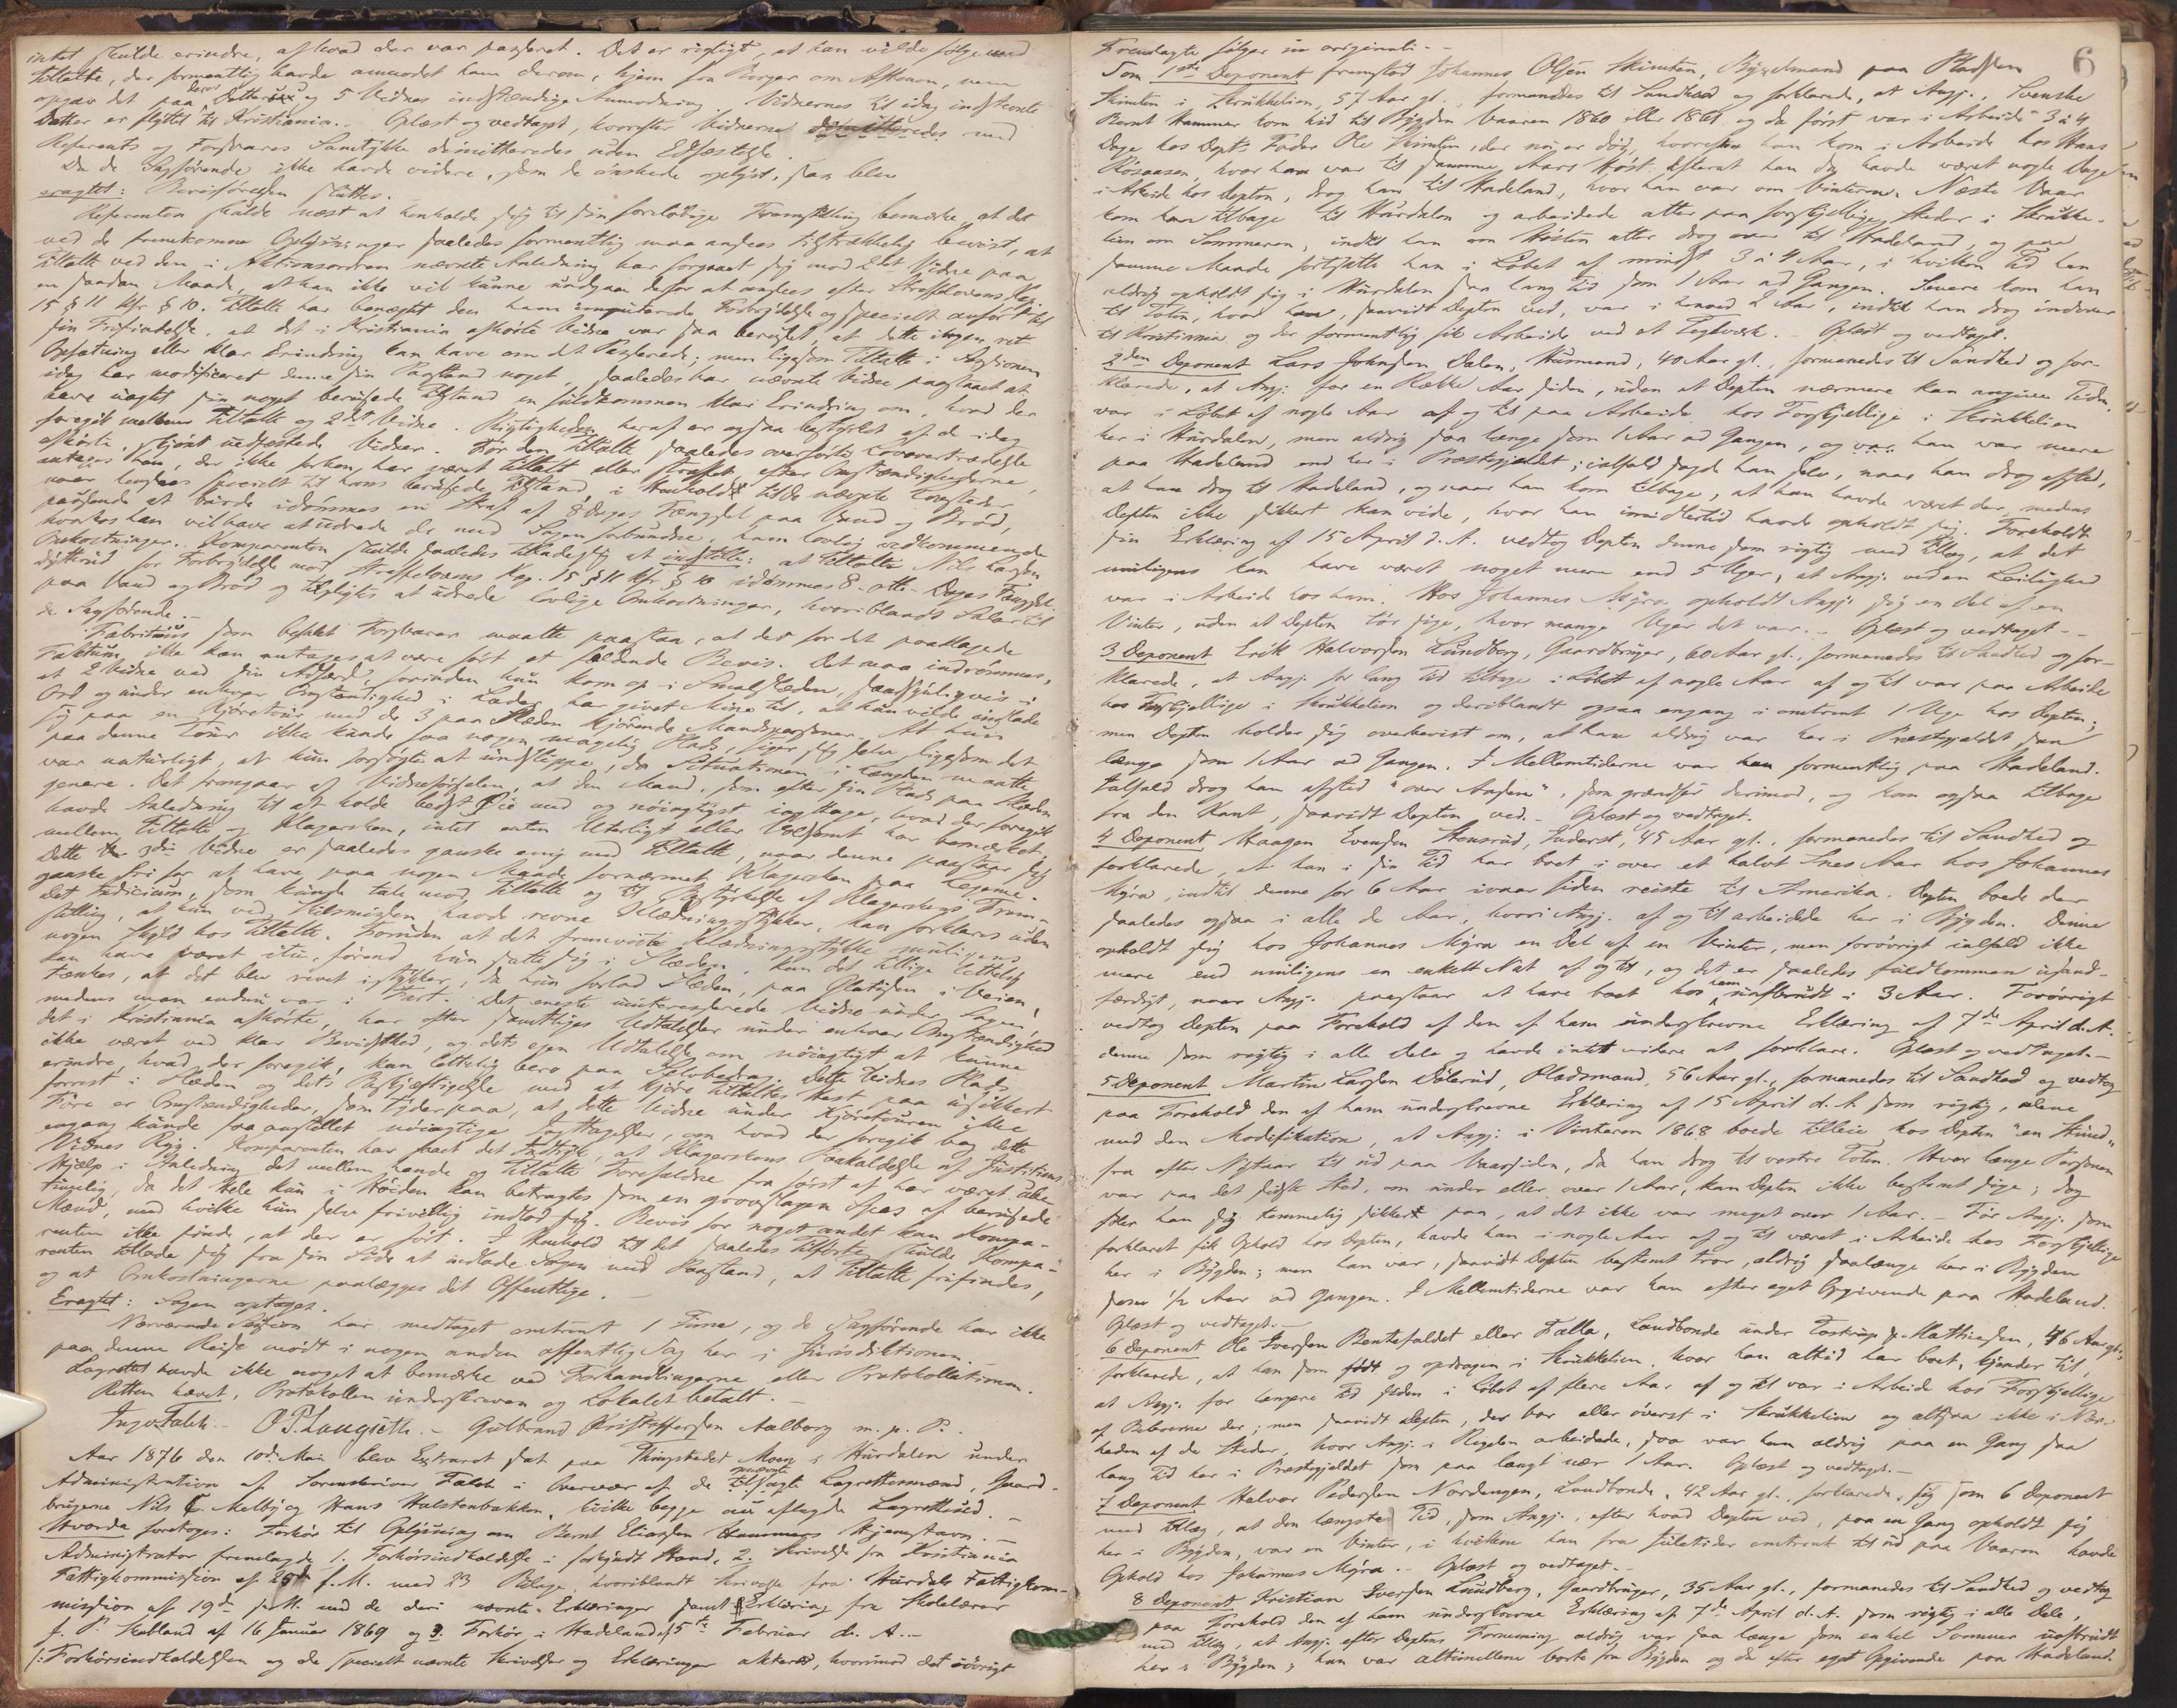 intet skulde erindre, af hvad der var passeret. Det er rigtigt, at han vilde følge med
Tiltalte, der formentlig havde anmodet ham derom, hjem fra Borger om Aftenen, men
opgav det paa deres Datters og 5 Vidnes indstændige Anmodning. Vidnernes til idag indstevnte
Datter er flyttet til Kristiania. Oplæst og vedtaget, hvorefter Vidnerne dimitteredes med
Referents og Forsvarers Samtykke dimitteredes uden Edfæstelse.
Da de Sagførende ikke havde videre, som de ønskede oplyst, saa blev
eragtet: Bevisførelsen sluttes.
Referenten skulde næst at henholde sig til sin foreløbige Fremstilling bemærke, at det
ved de fremkomne Oplysninger saaledes formentlig maa ansees tilstrækkelig bevist, at
Tiltalte ved den i Aktionsordren nævnte Anledning har forgaaet sig mod 2det Vidne paa
en saadan Maade, at han ikke vil kunne undgaa derfor at ansees efter Straffelovens Kap.
15 § 11 kfr. § 10. Tiltalte har benægtet den ham imputerede Forbrydelse og specielt anført til
sin Frifindelse, at det i Kristiania afhørte Vidne var saa beruset, at dette ingen ret
Opfatning eller klar Erindring kan have om det Passerede; men ligesom Tiltalte i Sessionen
idag har modificeret denne sin Paastand noget, saaledes har nævnte Vidne paastaaet at
have uagtet sin noget berusede Tilstand en fuldkommen klar Erindring om, hvad der
foregik mellem Tiltalte og 2det Vidne. Rigtigheden heraf er ogsaa bestyrket af de idag
afhørte, skjønt uedfæstede Vidner. For den Tiltalte saaledes overførte Lovovertrædelse
antages han, der ikke forhen har været tiltalt eller straffet, efter Omstændighederne,
naar hensees specielt til hans berusede Tilstand, i Henhold til de nævnte Lovsteder
passende at burde idømmes en Straf af 8 Dages Fængsel paa Vand og Brød,
hvorhos han vil have at udrede de med Sagen forbundne, ham lovlig vedkommende
Omkostninger. Komparenten skulde saaledes tillade sig at indstille: at Tiltalte Nils Larsen
Dytterud for Forbrydelse mod Straffelovens Kap. 15 § 11 kfr. § 10 idømmes 8 - otte - Dages Fængsel
paa Vand og Brød og tilpligtes at udrede lovlige Omkostninger, hvoriblandt Salær til
de Sagførende.
Fabritius som befalet Forsvarer maatte paastaa, at der for det paaklagede
Faktum ikke kan antages at være ført et fældende Bevis. Det maa indrømmes,
at 2 Vidne ved sin Adfærd, forinden hun kom op i Smalslæden, sandsynligvis i
Ord og under enhver Omstændighed i Lader har givet Mine til, at hun vilde indlade
sig paa en Kjøretour med de 3 paa Slæden kjørende Mandspersoner. At hun
paa denne Tour ikke kunde faa nogen magelig Plads, siger sig selv, ligesom det
var naturligt, at hun forsøgte at undslippe, da Situationen i Længden maatte
genere. Det fremgaar af Vidneførselen, at den Mand, som efter sin Plads paa Slæden
havde Anledning til at holde bedst Øie med og nøiagtigst iagttage, hvad der foregik
mellem Tiltalte og Klagersken, intet enten Uterligt eller Voldsomt har bemærket.
Dette 3die Vidne er saaledes ganske enig med Tiltalte, naar denne paastaar sig
ganske fri for at have paa nogen Maade fornærmet Klagersken paa Legeme.
Det Indicium, som kunde tale mod Tiltalte og til Bestyrkelse af Klagerskens Frem-
stilling, at hun ved Skilsmissen havde revne Klædningsstykker, kan forklares uden
nogen Skyld hos Tiltalte. Foruden at det fremviste Klædningsstykke muligens
kan have været itu, førend hun satte sig i Slæden, kan det tillige lettelig
tænkes, at det blev revet istykker, da hun forlod Slæden, paa Glatisen i Veien,
medens man endnu var i Fart. Det eneste uinteresserede Vidne under Sagen,
det i Kristiania afhørte, har efter samtliges Udtalelser under enhver Omstændighed
ikke været ved klar Bevidsthed, og dets egen Udtalelse om nøiagtigt at kunne
erindre, hvad der foregik, kan lettelig bero paa Selvbedrag. Dette Vidnes Plads
forrest i Slæden og dets Beskjæftigelse med at kjøre Tiltaltes Hest paa usikkert
Føre er Omstændigheder, som tyder paa, at dette Vidne under Kjøreturen ikke
engang kunde faa anstillet nøiagtige Iagttagelser, om hvad der foregik bag dette
Vidnes Ryg. Komparenten har faaet det Indtryk, at Klagerskens Paakaldelse af Justitiens
Hjælp i Anledning det mellem hende og Tiltalte Forefaldne fra først af har været utie
tilladelig, da det Hele kun i Høiden kan betragtes som en grovslagen Spas af berusede
Mænd, med hvilke hun selv frivillig indlod sig. Bevis for noget andet kan Kompa-
renten ikke finde, at der er ført. I Henhold til det saaledes Tilførte skulde Kompa-
renten tillade sig fra sin Side at indlade Sagen med Paastand, at Tiltalte frifindes,
og at Omkostningerne paalægges det Offentlige.
Eragtet: Sagen optages.
Nærværende Session har medtaget omtrent 1 Time, og de Sagførende har ikke
paa denne Reise mødt i nogen anden offentlig Sag her i Jurisdiktionen.
Lagretet havde ikke noget at bemærke ved Forhandlingerne eller Protokollationen.
Retten hævet, Protokollen underskreven og Lokalet betalt.
Ingv. Falch. O. P. Laugseth. Gulbrand Kristoffersen Aalborg m. p. P.
Aar 1876 den 10de Mai blev Extraret sat paa Thingstedet Moen i Hurdalen under
Administration af Sorenskriver Falch i Overvær af de nævnte Lagrettesmænd, Gaard-
brugerne Nils C. Melby og Hans Halstenbakken, hvilke begge nu aflagde Lagretteed.
Hvorda foretoges: Forhør til Oplysning om Bernt Eliassen Hammers Hjemstavn.
Administrator fremlagde 1. Forhørsindkaldelse i forkyndt Stand, 2. Skrivelse fra Kristiania
Fattigkommission af 25de f. M. med 23 Bilage, hvoriblandt Skrivelse fra Hurdals Fattigkom-
mission af 19de f. M. med de deri nævnte Erklæringer samt Erklæring fra Skolelærer
J. P. Skabland af 16 Januar 1869 og 3. Forhør i Hadeland af 5te Februar d. A.
/: Forhørsindkaldelsen og de specielt nævnte Skrivelser og Erklæringer akteres, hvorimod det øvrigt
6
Fremlagte følger in originali.
Som 1ste Deponent fremstod Johannes Olsen Skinten, Bygselmand paa Pladsen
Skinten i Skrukkelien, 57 Aar gl., formanedes til Sandhed og forklarede, at Angj., Svenske
Bernt Hammer kom hid til Bygden Vaaren 1860 eller 1861 og da først var i Arbeide 3 à 4
Dage hos Dept's Fader Ole Skinten, der nu er død, hvorefter han kom i Arbeide hos Hans
Røsaasen, hvor han var til samme Aars Høst. Efterat han da havde været nogle Dage
i Arbeide hos Depten, drog han til Hadeland, hvor han var om Vinteren. Næste Vaar
kom han tilbage til Hurdalen og arbeidede atter paa forskjellige Steder i Skrukke-
lien om Sommeren, indtil han om Høsten atter drog over til Hadeland, og paa
samme Maade fortsatte han i Løbet af mindst 3 à 4 Aar, i hvilken Tid han
aldrig opholdt sig i Hurdalen saa lang Tid som 1 Aar ad Gangen. Senere kom han
til Toten, hvor han, saavidt Depten ved, var i henved 2 Aar, indtil han drog indover
til Kristiania og der formentlig fik Arbeide ved et Teglværk. Oplæst og vedtaget.
2den Deponent Lars Johnsen Dalen, Husmand, 40 Aar gl., formanedes til Sandhed og for-
klarede, at Angj. for en Række Aar siden, uden at Depten nærmere kan angive Tiden,
var i Løbet af nogle Aar af og til paa Arbeide hos Forskjellige i Skrukkelien
her i Hurdalen, men aldrig saa længe som 1 Aar ad Gangen, og var han var mere
paa Hadeland end her i Præstegjældet; ialfald sagde han selv, naar han drog afsted,
at han drog til Hadeland, og naar han kom tilbage, at han havde været der, medens
Depten ikke sikkert kan vide, hvor han imidlertid havde opholdt sig. Foreholdt
sin Erklæring af 15 April d. A. vedtog Depten denne som rigtig med Tillæg, at det
muligens kan have været noget mere end 5 Uger, at Angj. ved en Leilighed
var i Arbeide hos ham. Hos Johannes Myra opholdt Angj. sig en Del af en
Vinter, uden at Depten tør sige, hvor mange Uger det var. Oplæst og vedtaget.
3 Deponent Erik Halvorsen Lundberg, Gaardbruger, 60 Aar gl., formanedes til Sandhed og for-
klarede, at Angj. for lang Tid tilbage i Løbet af nogle Aar af og til var paa Arbeide
hos Forskjellige i Skrukkelien og deriblandt ogsaa engang i omtrent 1 Uge hos Depten;
men Depten holder sig overbevist om, at han aldrig var her i Præstegjeldet saa
længe som 1 Aar ad Gangen. I Mellemtiderne var han formentlig paa Hadeland.
Ialfald drog han afsted "over Aasene", som grændser derimod, og kom ogsaa tilbage
fra den Kant, saavidt Depten ved. Oplæst og vedtaget.
4 Deponent Haagen Evensen Stensrud, Inderst, 45 Aar gl., formanedes til Sandhed og
forklarede, at han i sin Tid har boet i over et halvt Snes Aar hos Johannes
Myra, indtil denne for 6 Aar ivaar siden reiste til Amerika. Depten boede der
saaledes ogsaa i alle de Aar, hvori Angj. af og til arbeidede her i Bygden. Denne
opholdt sig hos Johannes Myra en Del af en Vinter, men forøvrigt ialfald ikke
mere end muligens en enkelt Nat af og til, og det er saaledes fuldkommen usand-
færdigt, naar Angj. paastaar at have boet hos ham uafbrudt i 3 Aar. Forøvrigt
vedtog Depten paa Forehold af den af ham underskrevne Erklæring af 7de April d. A.
denne som rigtig i alle Dele og havde intet videre at forklare. Oplæst og vedtaget.
5 Deponent Martin Larsen Dølerud, Pladsmand, 56 Aar gl., formanedes til Sandhed og vedtog
paa Forehold den af ham underskrevne Erklæring af 15 April d. A. som rigtig, alene
med den Modifikation, at Angj. i Vinteren 1868 boede tilleie hos Depten "en Stund"
fra efter Nytaar til ud paa Vaarsiden, da han drog til vestre Toten. Hvor længe Personen
var paa det sidste Sted, om under eller over 1 Aar, kan Depten ikke bestemt sige; dog
føler han sig temmelig sikker paa, at det ikke var meget over 1 Aar. Før Angj. som
forklaret fik Ophold hos Depten, havde han i nogle Aar af og til været i Arbeide hos Forskjellige
her i Bygden; men han var, saavidt Depten bestemt tror, aldrig saalænge her i Bygden
som 1/2 Aar ad Gangen. I Mellemtiderne var han efter eget Opgivende paa Hadeland.
Oplæst og vedtaget.
6 Deponent Ole Iversen Bentefaldet eller Falla, Landbonde under Tostrup & Mathiesen, 46 Aar gl.,
forklarede, at han som født og opdragen i Skrukkelien, hvor han altid har boet, kjender til,
at Angj. for længere Tid siden i Løbet af flere Aar af og til var i Arbeide hos Forskjellige
af Beboerne der; men saavidt Depten, der bor aller øverst i Skrukkelien og altsaa ikke i Nær-
heden af de Steder, hvor Angj. i Regelen arbeidede, saa var han aldrig paa en Gang saa
lang Tid her i Præstegjeldet som paa langt nær 1 Aar. Oplæst og vedtaget.
7 Deponent Halvor Pedersen Nordengen, Landbonde, 42 Aar gl., forklarede sig som 6 Deponent
med Tillæg, at den længste Tid, som Angj., efter hvad Depten ved, paa en Gang opholdt sig
her i Bygden, var en Vinter, i hvilken han fra Juletider omtrent til ud paa Vaaren havde
Ophold hos Johannes Myra. Oplæst og vedtaget.
8 Deponent Kristian Iversen Lundberg, Gaardbruger, 35 Aar gl., formanedes til Sandhed og vedtog
paa Forehold den af ham underskrevne Erklæring af 7de April d. A. som rigtig i alle Dele,
med Tillæg, at Angj. efter Deptens Formening aldrig var saa længe som en hel Sommer uafbrudt
her i Bygden; han var altimellem borte fra Bygden og da efter eget Opgivende paa Hadeland.